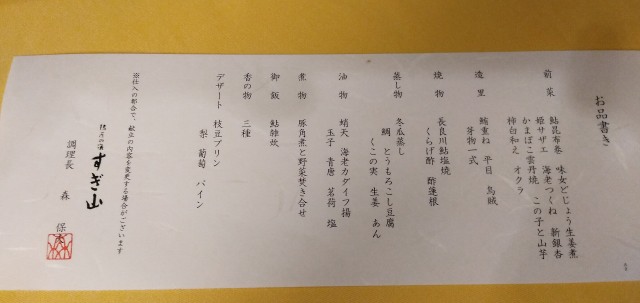 お品書き
前菜　鮎昆布巻　味女どじょう生姜煮
姫サザエ　海老つくね　新銀杏
かまぼこ雲丹焼　この子と山芋
柿白和え　オクラ
造里　鱧重ね　平目　烏賊
芽物一式
焼物　長良川鮎塩焼
くらげ酢　酢蓮根
蒸し物　冬瓜蒸し
鯛　とうもろこし豆腐
くこの実　生姜　あん
油物　蛸天　海老カダイフ揚
玉子　青唐　茗荷　塩
煮物　豚角煮と野菜焚き合せ
御飯　鮎雑炊
香の物　三種
デザート　枝豆プリン
梨　葡萄　パイン
※仕入の都合で、献立の内容を変更する場合がございます
すぎ山
調理長　森　保